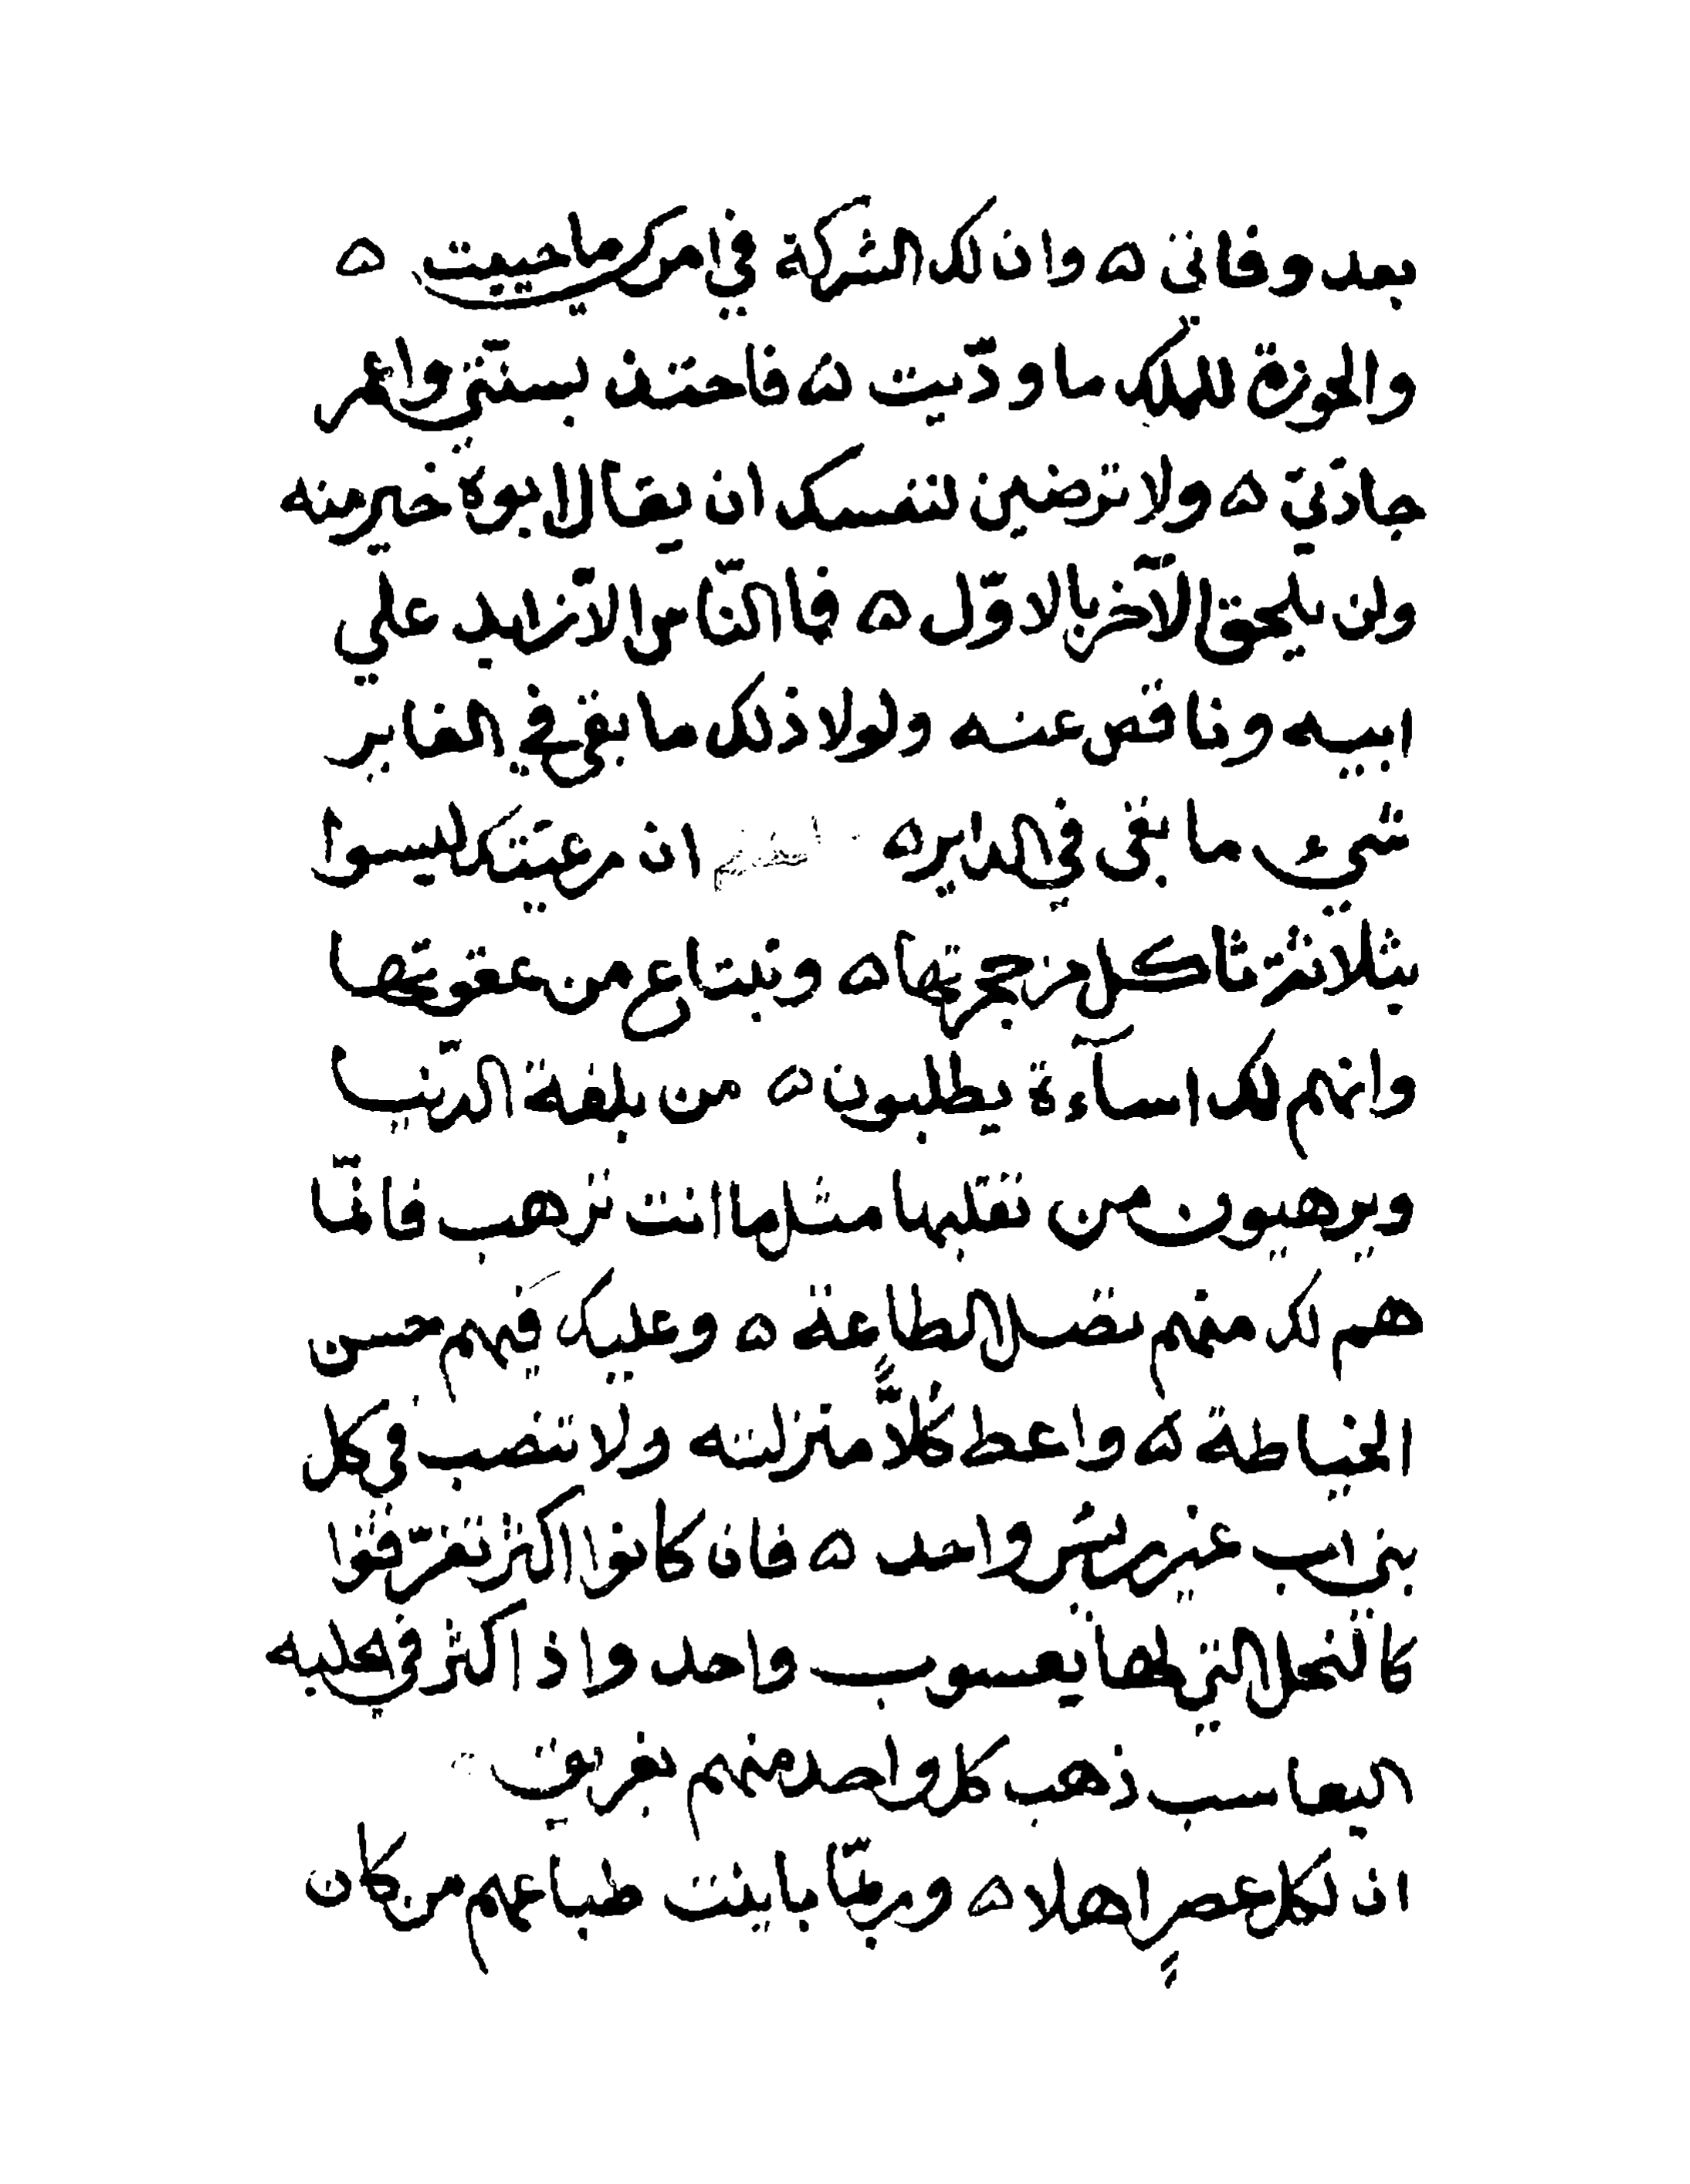 بعد وفاتي ۵ وان لك الشركة في امركي ما حييت ۵
والحوزة للملك ما ودّيت ۵ فاحتذ بسنتي واعمر
جادّتي ۵ ولا ترضين لنفسك ان يقال ابوه خير منه
ولن يلحق الآخر بالاوّل ۵ فما النّاس الا تزايد علي
ابيه وناقص عنه ولولا ذلك ما بقي في الغابر
شيء ما بقى في الداير ۵ ان رعيتك ليسوا
بثلاثة تاكل من حجرتها ۵ وتبتاع من عقوتها
وانهم لك اساءة يطلبون ۵ من بلغة الدّنيا
ويرهبون من تقلبها مثل ما انت ترهب فانما
هم لك منهم تضل الطاعةٍ ۵ وعليك فيهم حسن
الخياطة ۵ واعط كُلاًّ منزلته ولا تنصب في كل
بني اب غير رئيس واحد ۵ فان كانوا اكثر تفرّقوا
كالنحل التي لها يعسوب واحد واذا كثر في
اليعاسب ذهب كل واحد منهم بفريق
ان لكل عصرٍ اهلا ۵ وربمّا باينت طباعهم من كان